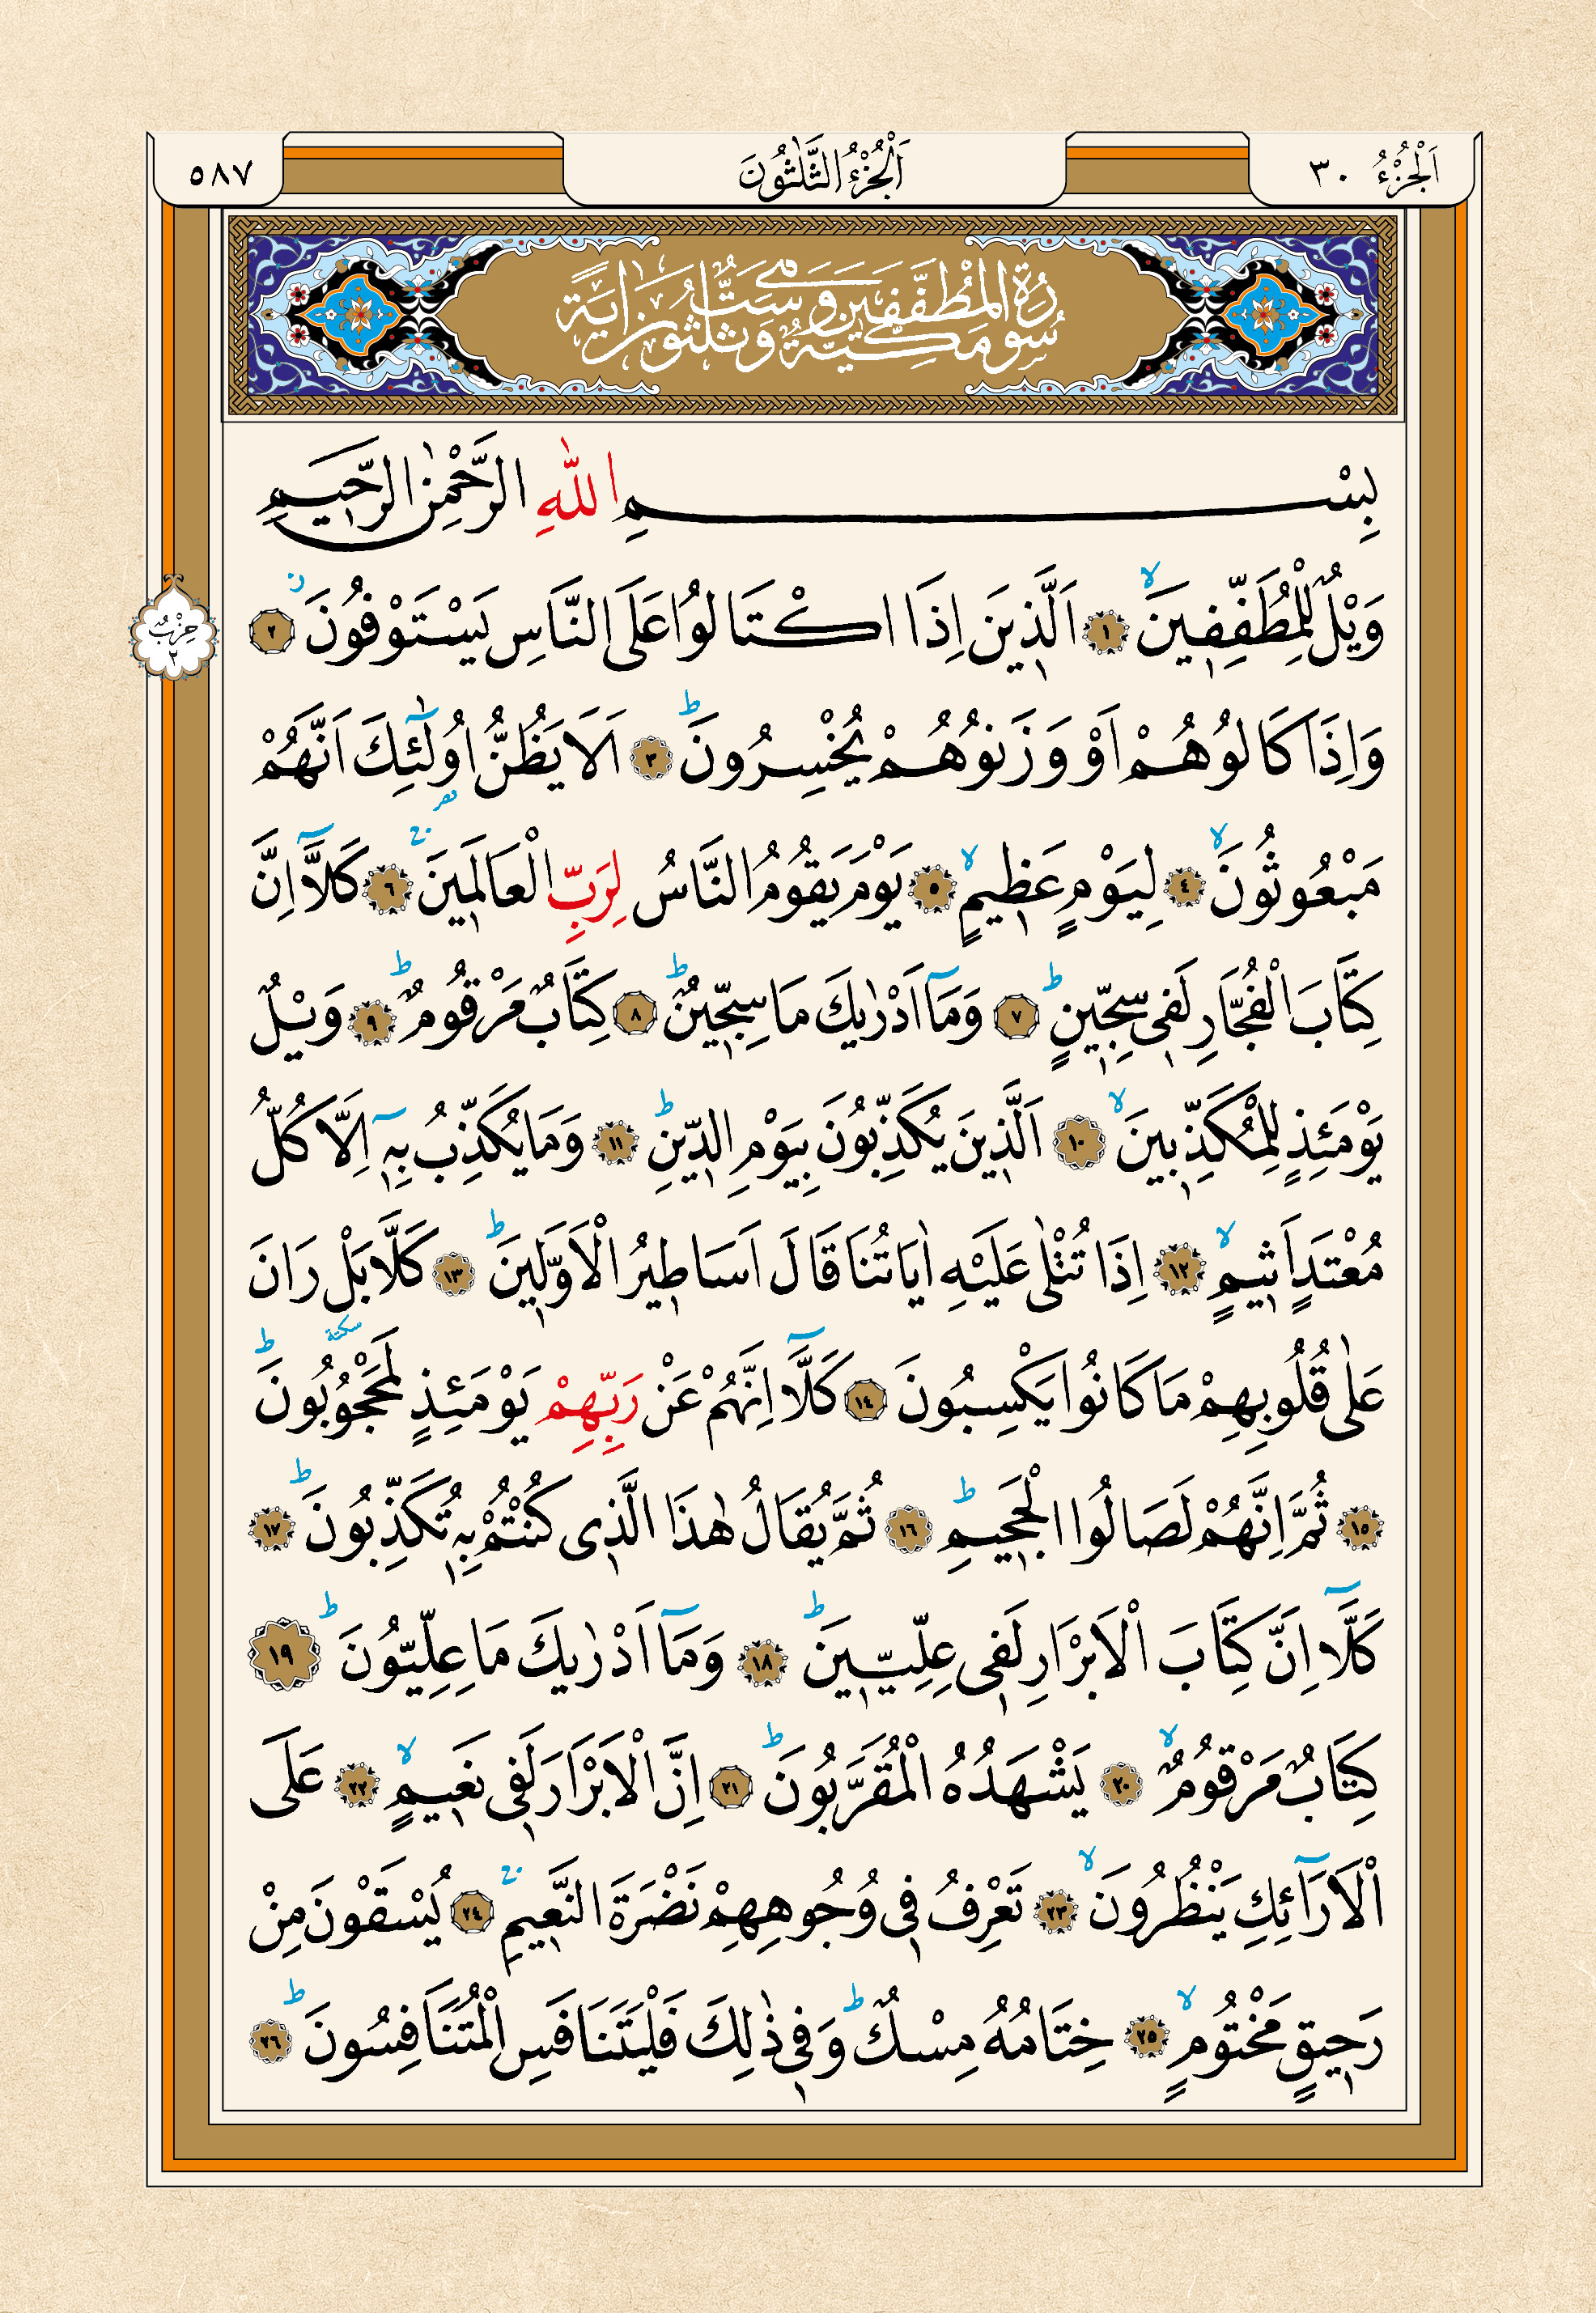 اَلْجُزْءُ ٣٠
اَلْجُزْءُ الثَّلٰثُونَ
٥٨٧
سُورَةُ الْمُطَفِّفِينَ مَكِّيَّةٌ وَهِيَ سِتٌّ وَثَلٰثُونَ اٰيَةً
بِسْمِ اللّٰهِ الرَّحْمٰنِ الرَّحِيمِ
وَيْلٌ لِلْمُطَفِّفٖينَۙ ﴿١﴾ اَلَّذٖينَ اِذَا اكْتَالُوا عَلَى النَّاسِ يَسْتَوْفُونَؗ ﴿٢﴾
حِزْبٌ ٢
وَاِذَا كَالُوهُمْ اَوْ وَزَنُوهُمْ يُخْسِرُونَؕ ﴿٣﴾ اَلَا يَظُنُّ اُو۬لٰٓئِكَ اَنَّهُمْ
مَبْعُوثُونَۙ ﴿٤﴾ لِيَوْمٍ عَظٖيمٍۙ ﴿٥﴾ يَوْمَ يَقُومُ النَّاسُ لِرَبِّ الْعَالَمٖينَؕ ﴿٦﴾ كَلَّٓا اِنَّ
كِتَابَ الْفُجَّارِ لَفٖى سِجّٖينٍؕ ﴿٧﴾ وَمَٓا اَدْرٰيكَ مَا سِجّٖينٌؕ ﴿٨﴾ كِتَابٌ مَرْقُومٌؕ ﴿٩﴾ وَيْلٌ
يَوْمَئِذٍ لِلْمُكَذِّبٖينَۙ ﴿١٠﴾ اَلَّذٖينَ يُكَذِّبُونَ بِيَوْمِ الدّٖينِؕ ﴿١١﴾ وَمَا يُكَذِّبُ بِهٖٓ اِلَّا كُلُّ
مُعْتَدٍ اَثٖيمٍۙ ﴿١٢﴾ اِذَا تُتْلٰى عَلَيْهِ اٰيَاتُنَا قَالَ اَسَاطٖيرُ الْاَوَّلٖينَؕ ﴿١٣﴾ كَلَّا بَلْ رَانَ
عَلٰى قُلُوبِهِمْ مَا كَانُوا يَكْسِبُونَ ﴿١٤﴾ كَلَّٓا اِنَّهُمْ عَنْ رَبِّهِمْ يَوْمَئِذٍ لَمَحْجُوبُونَؕ
﴿١٥﴾ ثُمَّ اِنَّهُمْ لَصَالُوا الْجَحٖيمِؕ ﴿١٦﴾ ثُمَّ يُقَالُ هٰذَا الَّذٖى كُنْتُمْ بِهٖ تُكَذِّبُونَؕ ﴿١٧﴾
كَلَّٓا اِنَّ كِتَابَ الْاَبْرَارِ لَفٖى عِلِّيّٖينَؕ ﴿١٨﴾ وَمَٓا اَدْرٰيكَ مَا عِلِّيُّونَؕ ﴿١٩﴾
كِتَابٌ مَرْقُومٌۙ ﴿٢٠﴾ يَشْهَدُهُ الْمُقَرَّبُونَؕ ﴿٢١﴾ اِنَّ الْاَبْرَارَ لَفٖى نَعٖيمٍۙ ﴿٢٢﴾ عَلَى
الْاَرَٓائِكِ يَنْظُرُونَۙ ﴿٢٣﴾ تَعْرِفُ فٖى وُجُوهِهِمْ نَضْرَةَ النَّعٖيمِۚ ﴿٢٤﴾ يُسْقَوْنَ مِنْ
رَحٖيقٍ مَخْتُومٍۙ ﴿٢٥﴾ خِتَامُهُ مِسْكٌؕ وَفٖى ذٰلِكَ فَلْيَتَنَافَسِ الْمُتَنَافِسُونَؕ ﴿٢٦﴾